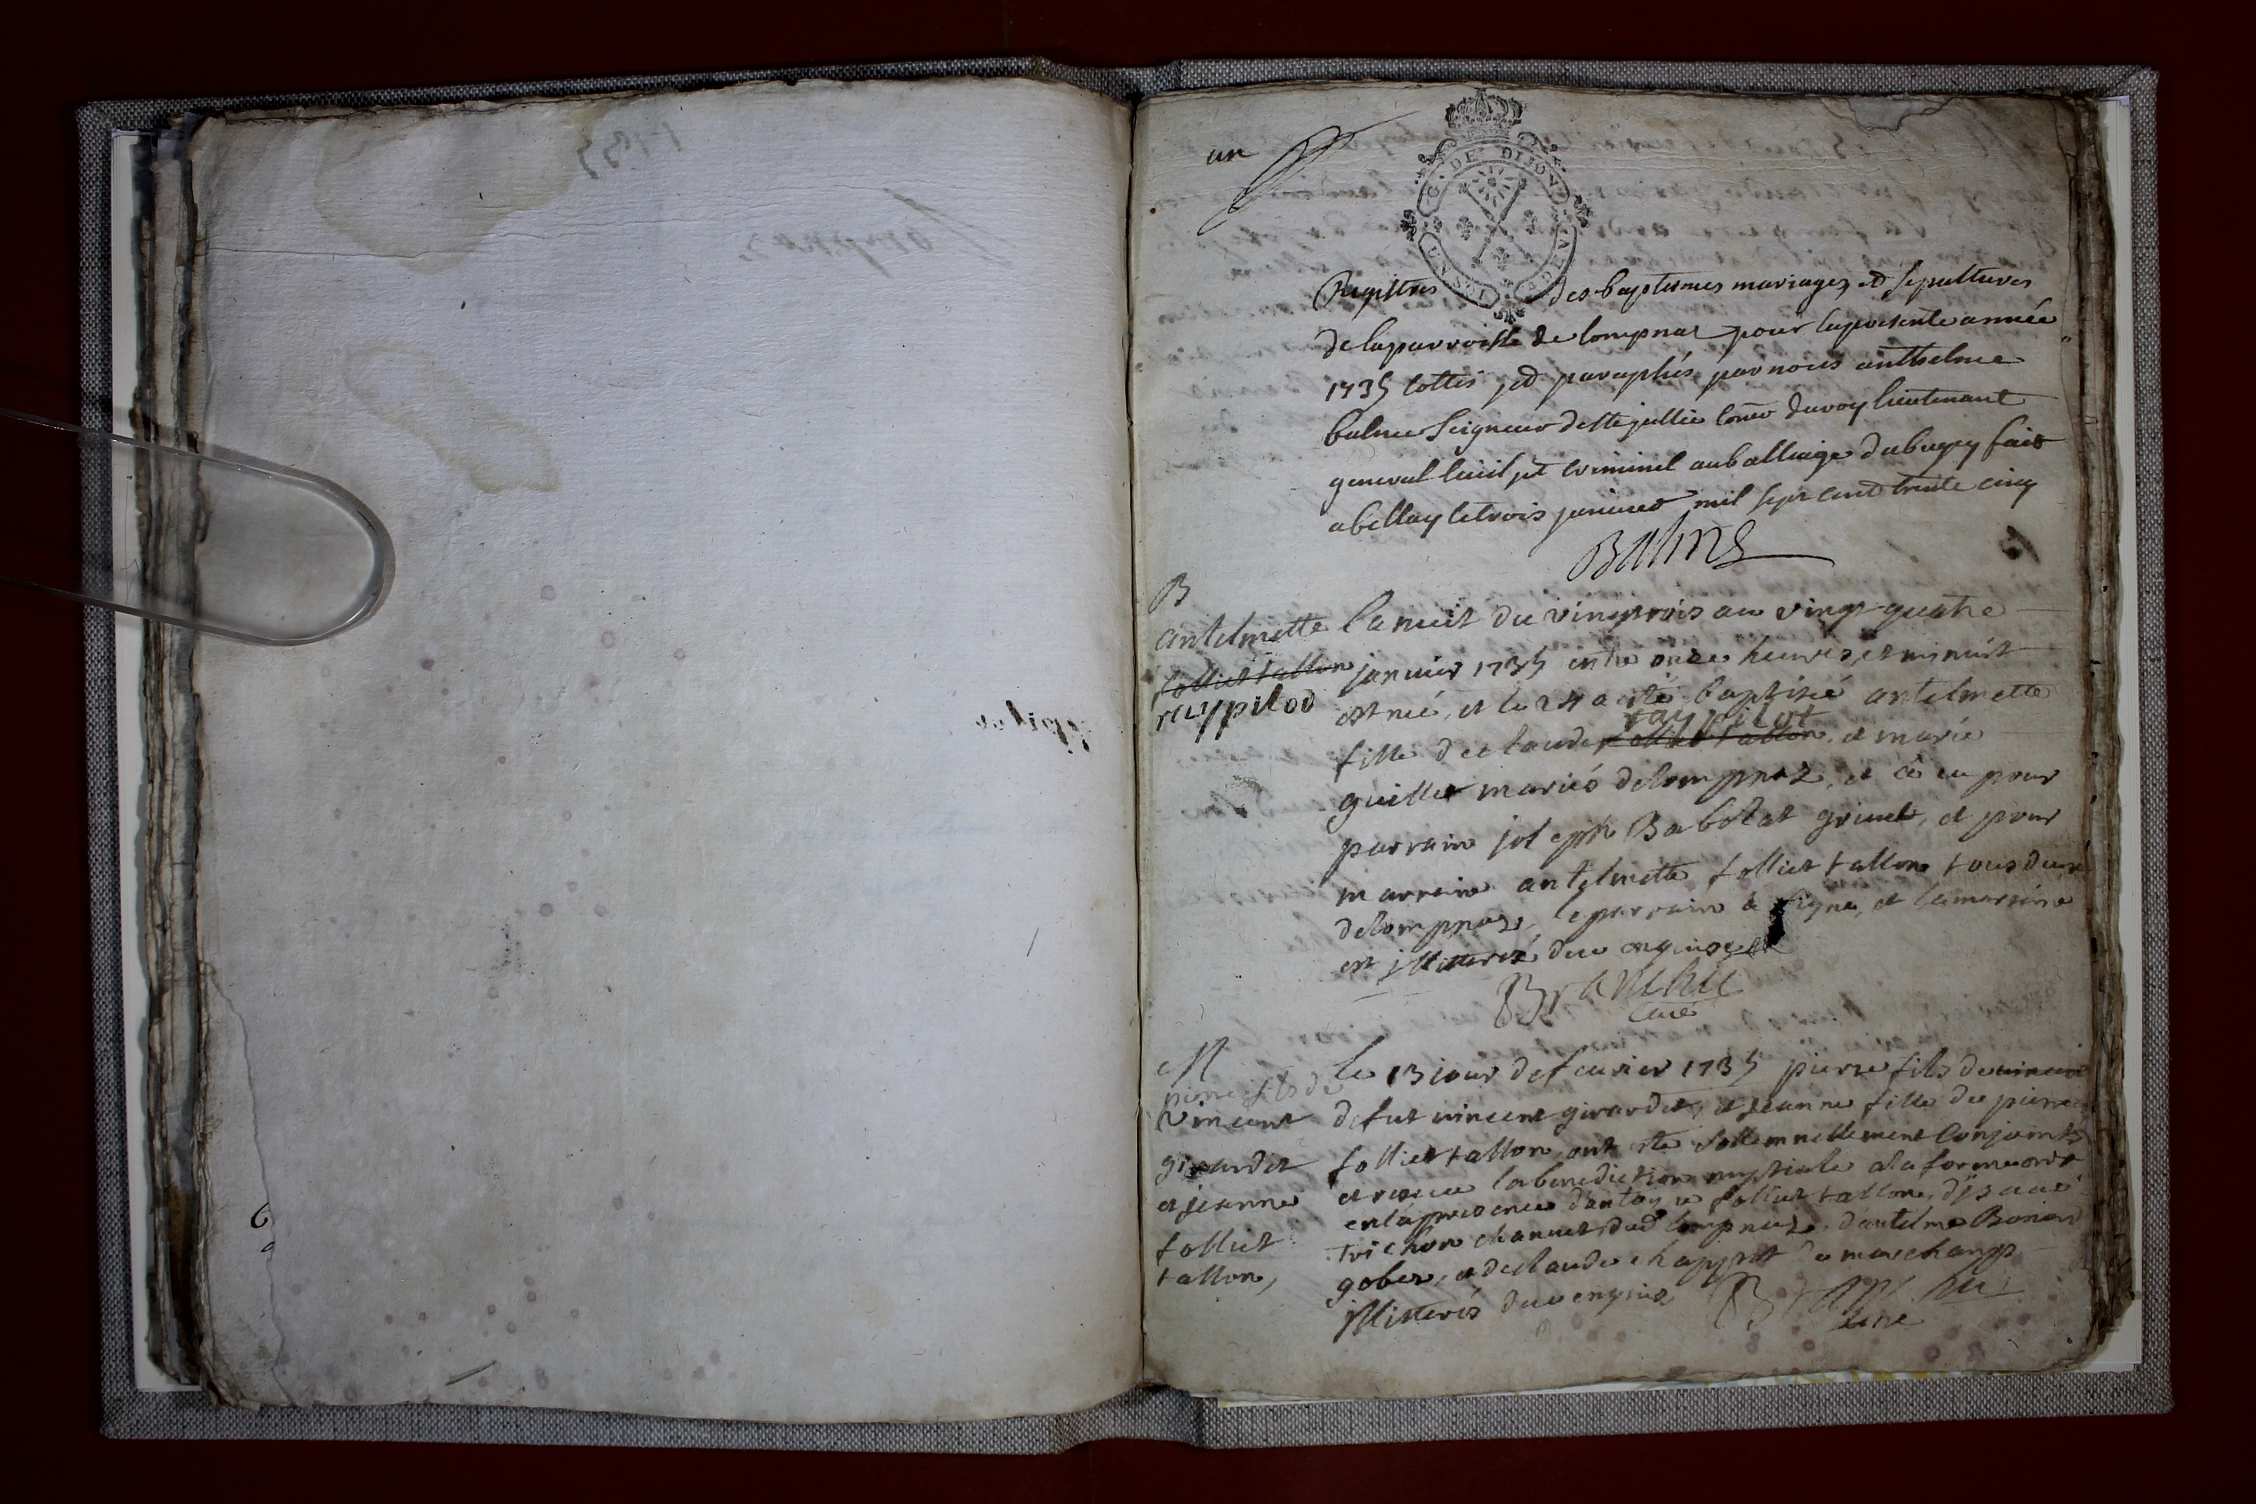 un
G. DE DIJON
Registres des baptesmes mariages et sepultures
de la parroisse de lompnas pour la presente année
1735 cottés et paraphés par nous anthelme
balme Seigneur de Ste jullie du roy lieutenant
general civil et criminel au balliage du bugey fait
a bellay le trois janvier mil sept cent trente cinq
Balme
B
antelmette
folliet tallon
raypilod
la nuit du vingtrois au vingt quatre
janvier 1735 entre onze heures et minuit
est née, et le 24 a esté baptisée antelmette
raypilot
fille de claude folliet tallon, et marie
guillet mariés de lompnaz, et a eu pour
parrain joseph Babolat grinet, et pour
marraine antelmette folliet tallon tous deux
de lompnaz, le parrain a signé, et la marraine
est illitterée de ce enquise
Branche
curé
M
pierre fils de
vincent
girardet
et jeanne
folliet
tallon,
le 13 jour de fevrier 1735 pierre fils de vincent
de fut vincent girardet, et jeanne fille de pierre
folliet tallon, ont esté sollemnellement conjoints
et receu la benediction nuptiale a la forme ord
en la presence folliet tallon,
trichon chanut dud lompnaz, d'antelme Bonard
gober, et de claude chappot marchamp
illitterés de ce enquis
Branche
curé
6